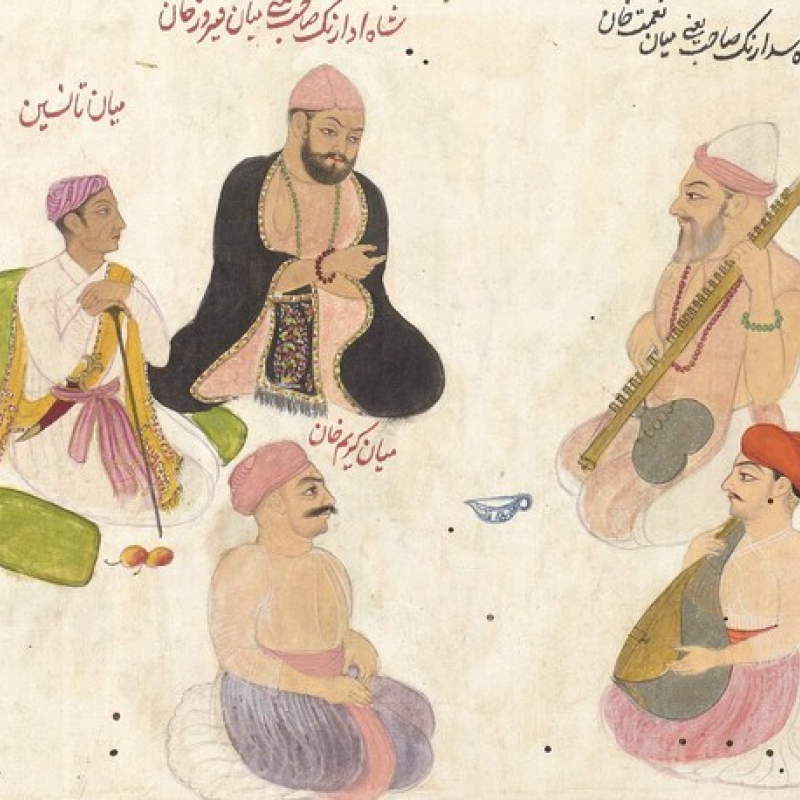 شاه ادارنگ صاحب یعنی میان فیروز خان
سدارنگ صاحب یعنی میان نعمت خان
میان تانسین
میان کریم خان